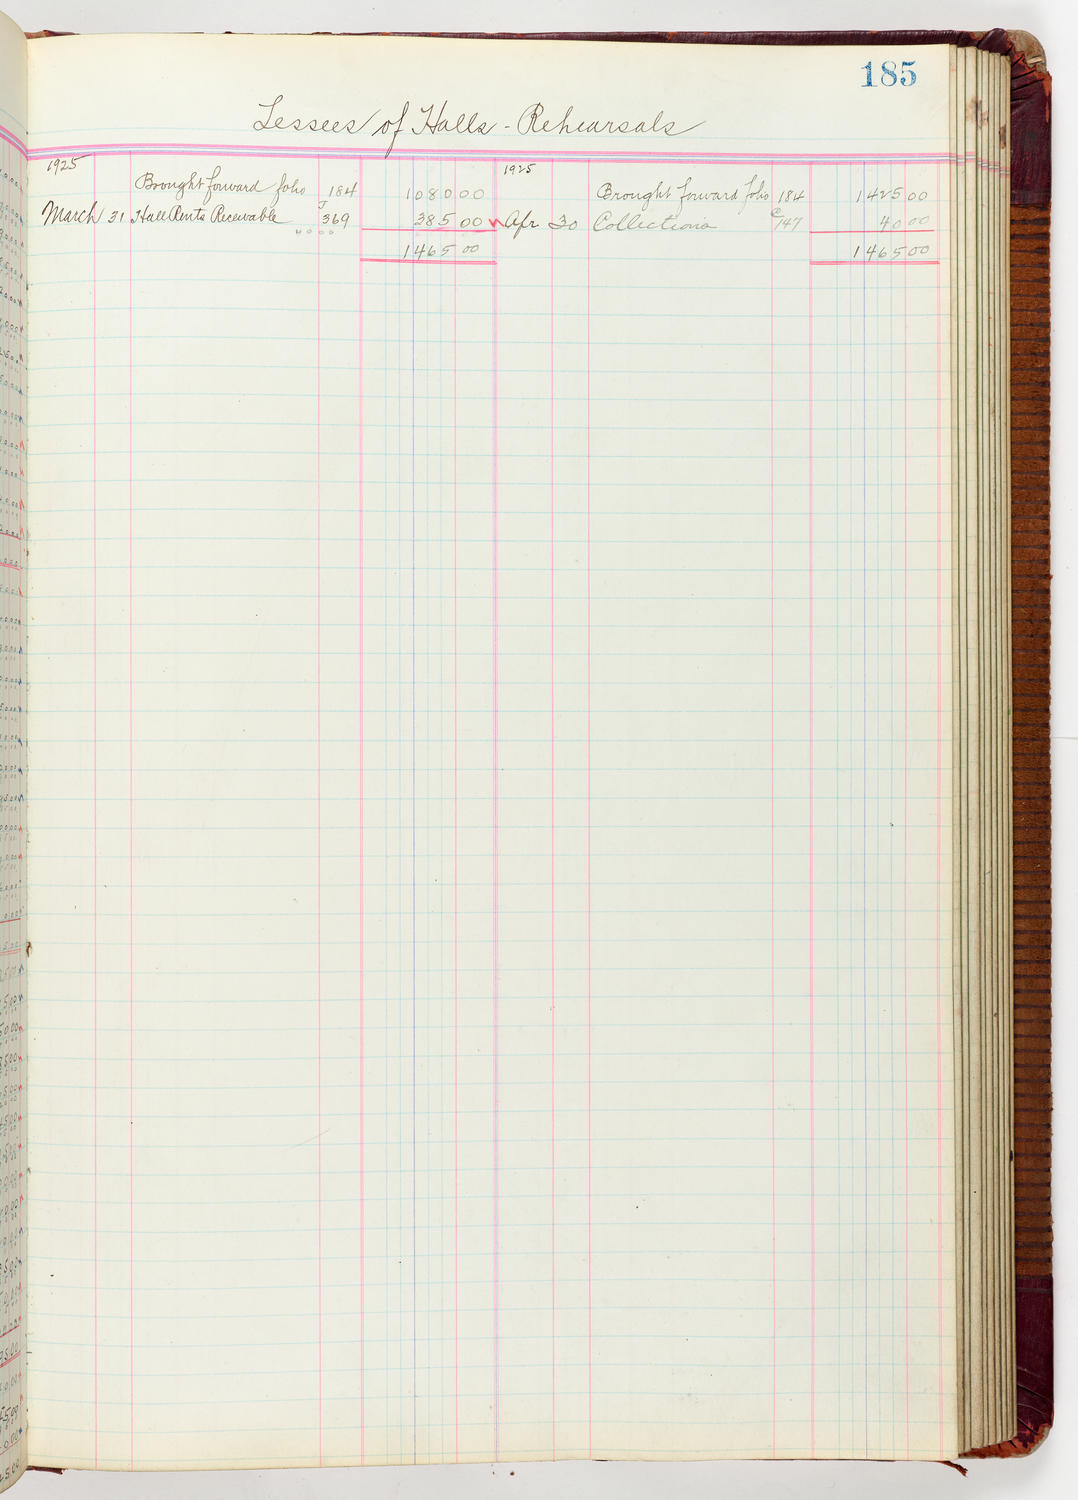 185
Lessees of Halls - Rehearsals
1925 1925
Brought forward folio 184 1080 00 Brought forward folio 184 1425 00
J C
March 31 Hall Rents Receivable 369 385 00 Apr 30 Collections 147 40 00
40 00
1465 00 1465 00